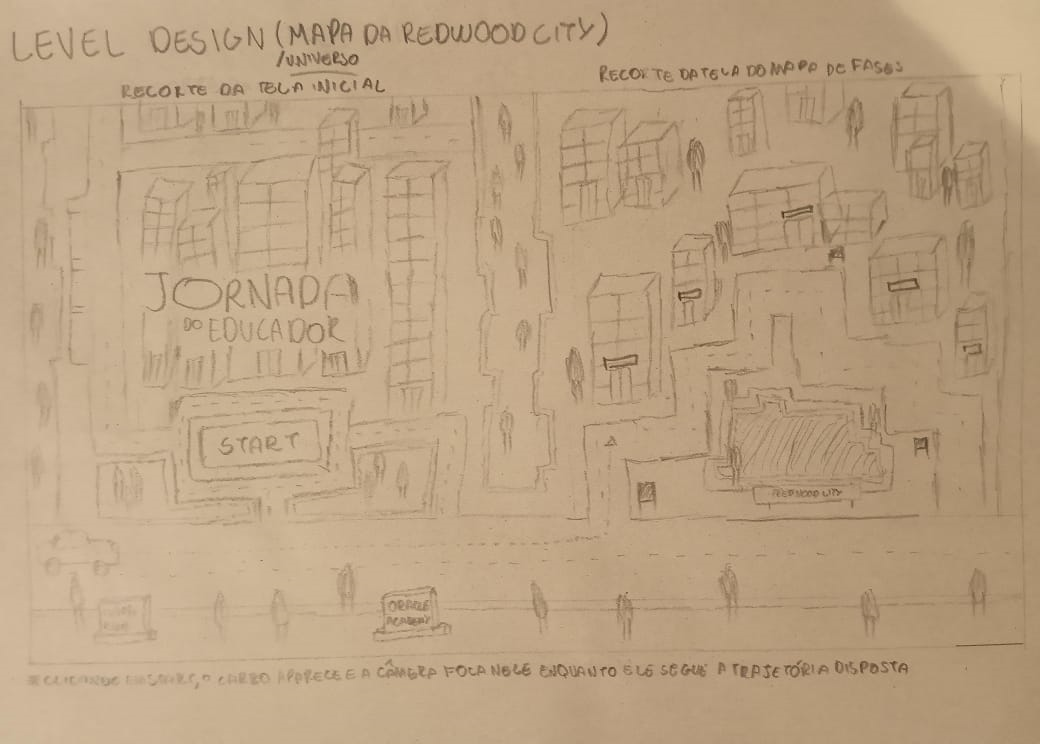 LEVEL DESIGN (MAPA DA REDWOOD CITY)
/UNIVERSO
RECORTE DA TELA INICIAL
RECORTE DA TELA DO MAPA DE FASES
JORNADA
DO EDUCADOR
START
REDWOOD CITY
ORACLE
ACADEMY
*CLICANDO EM START, O CARRO APARECE E A CÂMERA FOCA NELE ENQUANTO ELE SEGUE A TRAJETÓRIA DISPOSTA